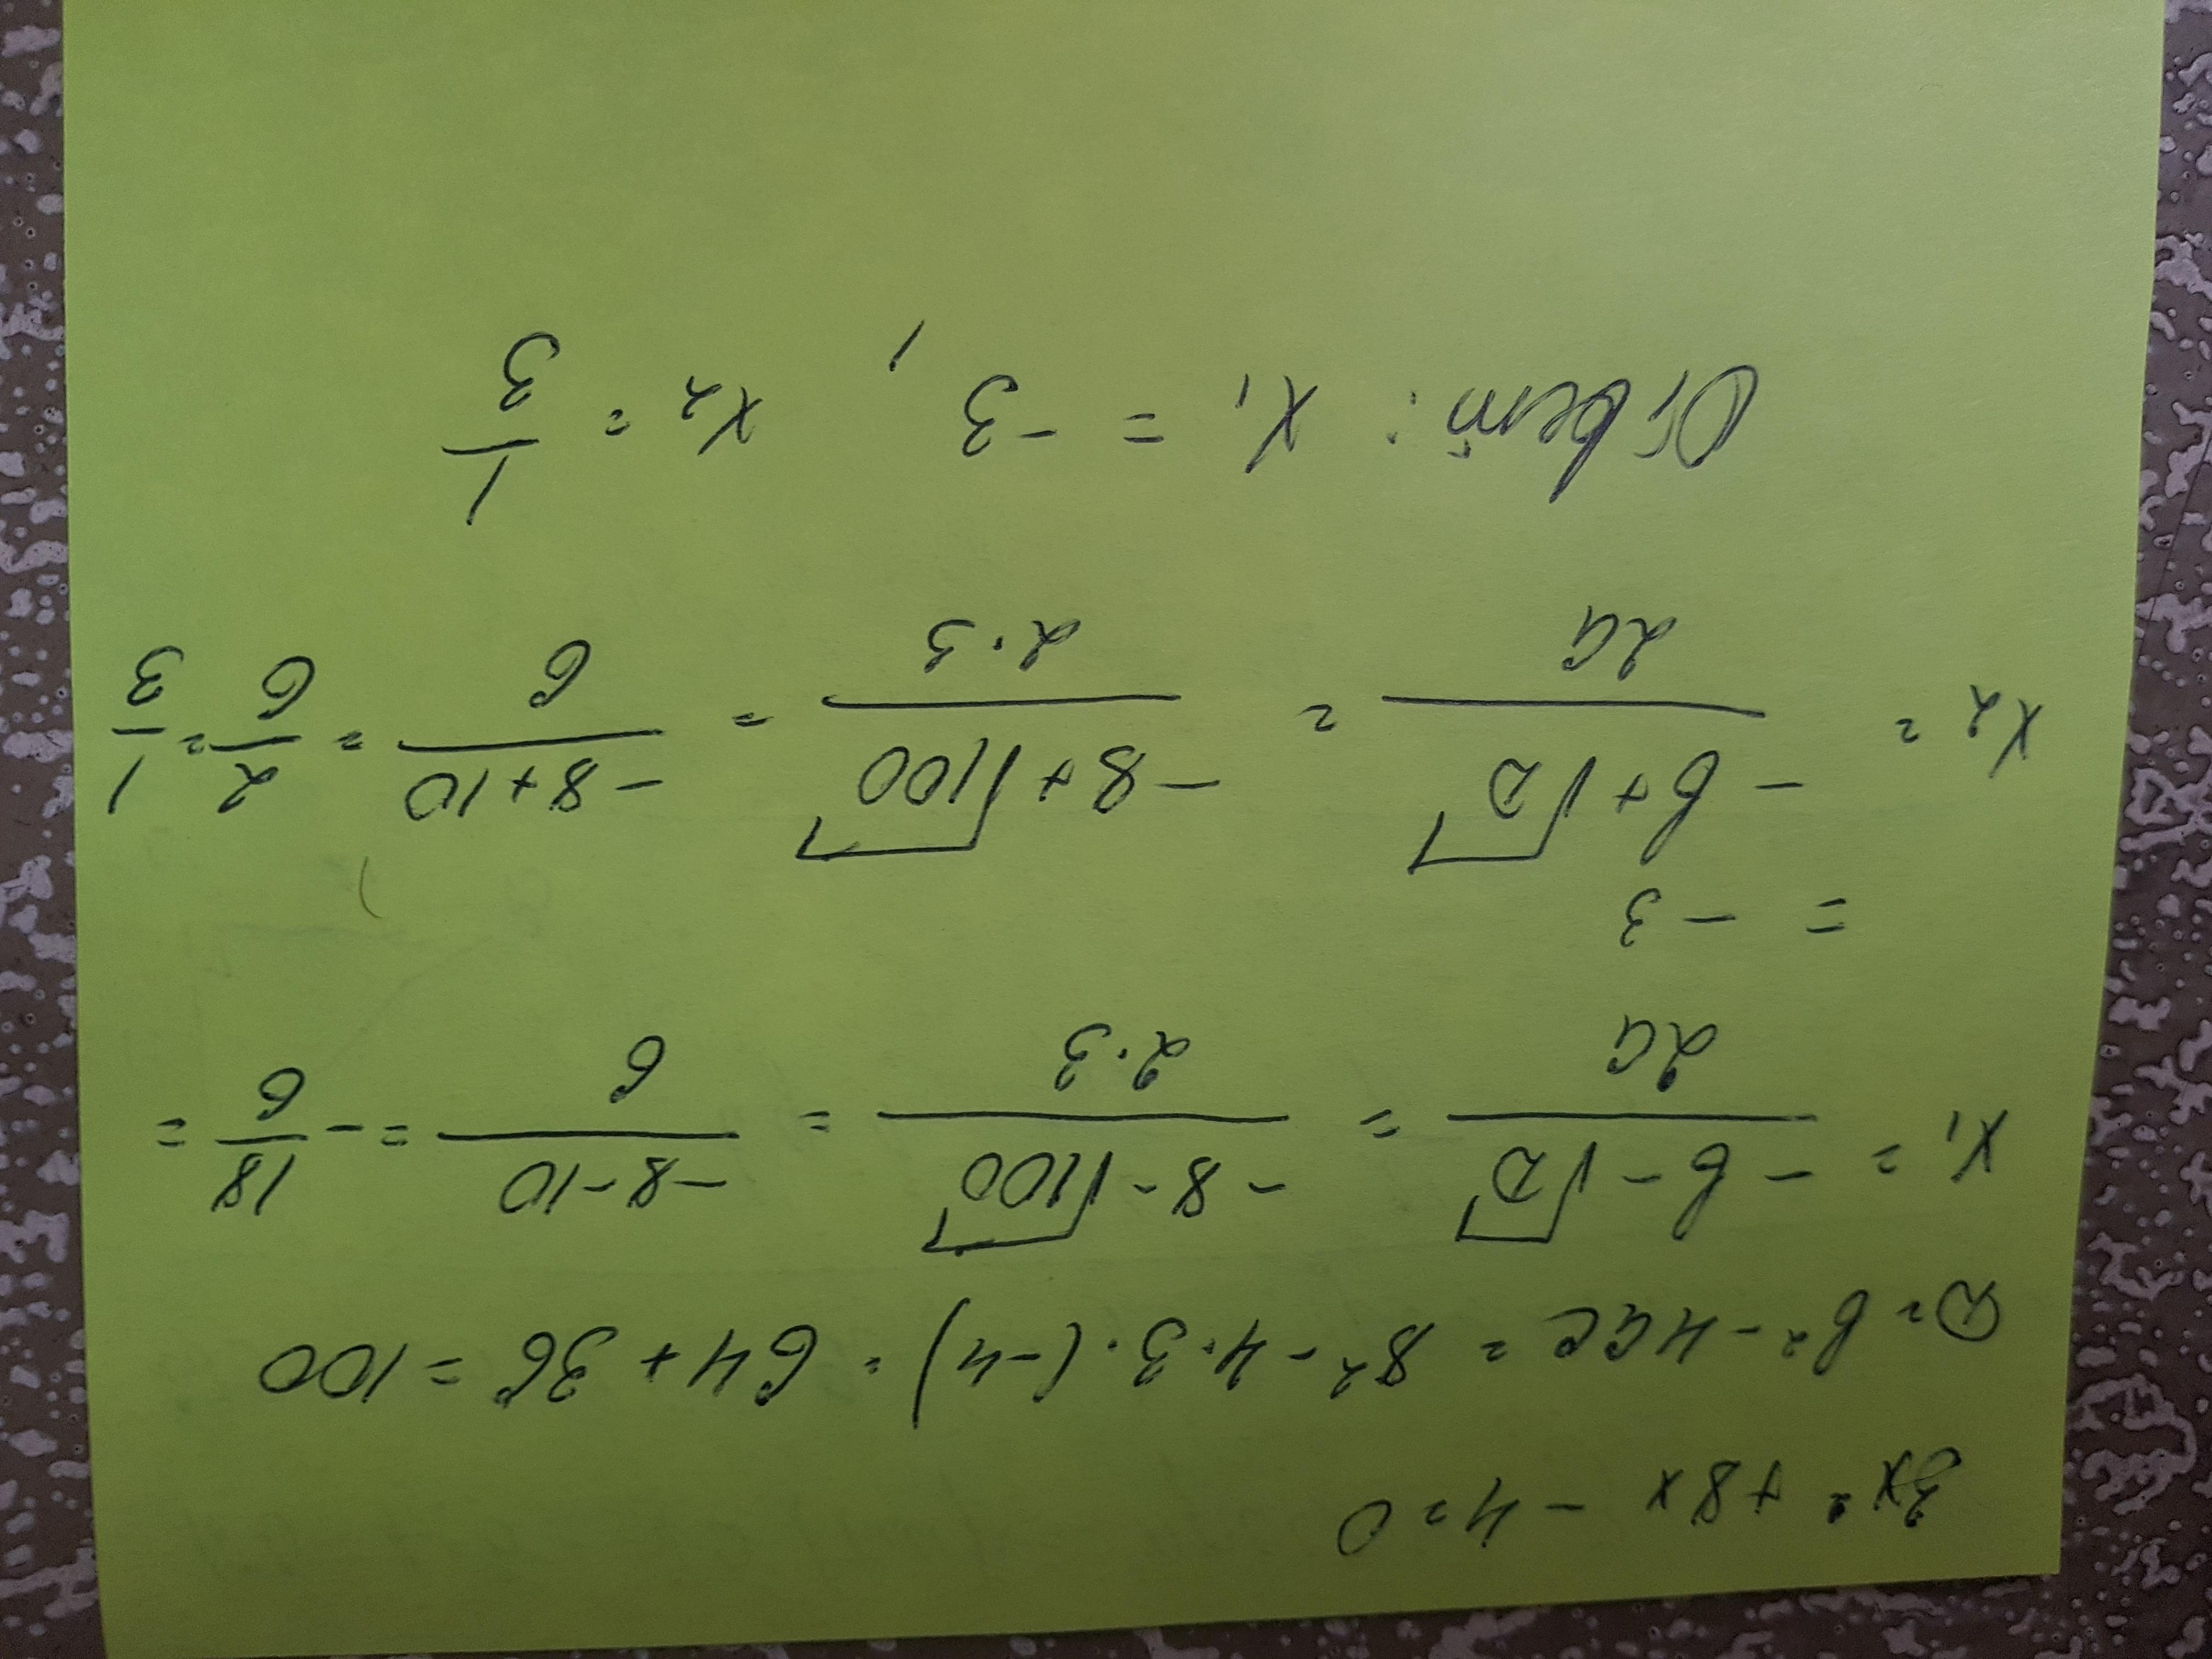 3x² + 8x - 4 = 0
D = b² - 4ac = 8² - 4·3·(-4) = 64 + 36 = 100
x₁ = (-b - √D)/(2a) = (-8 - √100)/(2·3) = (-8 - 10)/6 = -18/6 =
= -3
x₂ = (-b + √D)/(2a) = (-8 + √100)/(2·3) = (-8 + 10)/6 = 2/6 = 1/3
Ответ: x₁ = -3, x₂ = 1/3